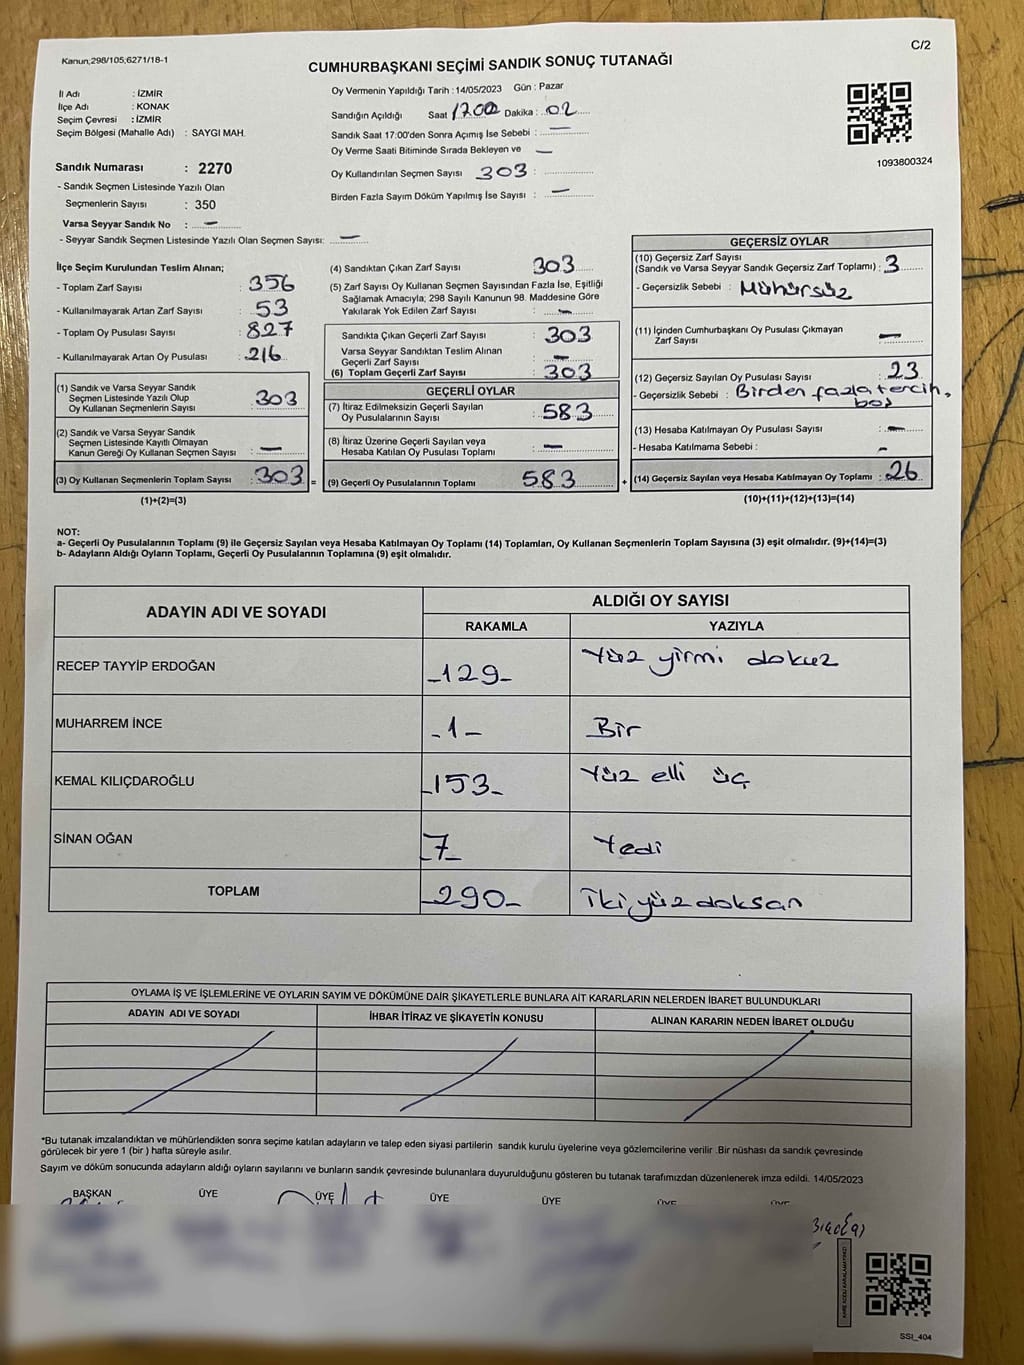 Kanun;298/105,6271/18-1
C/2
CUMHURBAŞKANI SEÇİMİ SANDIK SONUÇ TUTANAĞI
İl Adı : İZMİR
İlçe Adı : KONAK
Seçim Çevresi : İZMİR
Seçim Bölgesi (Mahalle Adı) : SAYGI MAH.
Oy Vermenin Yapıldığı Tarih : 14/05/2023 Gün : Pazar
Sandığın Açıldığı Saat 1700 Dakika : 02
Sandık Saat 17:00'den Sonra Açımış İse Sebebi : —
Oy Verme Saati Bitiminde Sırada Bekleyen ve —
Oy Kullandırılan Seçmen Sayısı 303 :
Birden Fazla Sayım Döküm Yapılmış İse Sayısı : —
1093800324
Sandık Numarası : 2270
- Sandık Seçmen Listesinde Yazılı Olan
Seçmenlerin Sayısı : 350
Varsa Seyyar Sandık No : —
- Seyyar Sandık Seçmen Listesinde Yazılı Olan Seçmen Sayısı: —
İlçe Seçim Kurulundan Teslim Alınan;
- Toplam Zarf Sayısı : 356
- Kullanılmayarak Artan Zarf Sayısı : 53
- Toplam Oy Pusulası Sayısı : 827
- Kullanılmayarak Artan Oy Pusulası : 216
(1) Sandık ve Varsa Seyyar Sandık
Seçmen Listesinde Yazılı Olup
Oy Kullanan Seçmenlerin Sayısı : 303
(2) Sandık ve Varsa Seyyar Sandık
Seçmen Listesinde Kayıtlı Olmayan
Kanun Gereği Oy Kullanan Seçmen Sayısı : —
(3) Oy Kullanan Seçmenlerin Toplam Sayısı : 303 =
(1)+(2)=(3)
(4) Sandıktan Çıkan Zarf Sayısı 303
(5) Zarf Sayısı Oy Kullanan Seçmen Sayısından Fazla İse, Eşitliği
Sağlamak Amacıyla; 298 Sayılı Kanunun 98. Maddesine Göre
Yakılarak Yok Edilen Zarf Sayısı : —
Sandıkta Çıkan Geçerli Zarf Sayısı : 303
Varsa Seyyar Sandıktan Teslim Alınan
Geçerli Zarf Sayısı : —
(6) Toplam Geçerli Zarf Sayısı : 303
GEÇERLİ OYLAR
(7) İtiraz Edilmeksizin Geçerli Sayılan
Oy Pusulasının Sayısı : 583
(8) İtiraz Üzerine Geçerli Sayılan veya
Hesaba Katılan Oy Pusulası Toplamı : —
(9) Geçerli Oy Pusulalarının Toplamı 583 +
GEÇERSİZ OYLAR
(10) Geçersiz Zarf Sayısı
(Sandık ve Varsa Seyyar Sandık Geçersiz Zarf Toplamı) : 3
- Geçersizlik Sebebi : Mühürsüz
(11) İçinden Cumhurbaşkanı Oy Pusulası Çıkmayan
Zarf Sayısı : —
(12) Geçersiz Sayılan Oy Pusulası Sayısı : 23
- Geçersizlik Sebebi : Birden fazla tercih,
boş
(13) Hesaba Katılmayan Oy Pusulası Sayısı : —
- Hesaba Katılmama Sebebi : —
(14) Geçersiz Sayılan veya Hesaba Katılmayan Oy Toplamı : 26
(10)+(11)+(12)+(13)=(14)
NOT:
a- Geçerli Oy Pusulalarının Toplamı (9) ile Geçersiz Sayılan veya Hesaba Katılmayan Oy Toplamı (14) Toplamları, Oy Kullanan Seçmenlerin Toplam Sayısına (3) eşit olmalıdır. (9)+(14)=(3)
b- Adayların Aldığı Oyların Toplamı, Geçerli Oy Pusulalarının Toplamına (9) eşit olmalıdır.
ADAYIN ADI VE SOYADI ALDIĞI OY SAYISI
RAKAMLA YAZIYLA
RECEP TAYYİP ERDOĞAN -129- Yüz yirmi dokuz
MUHARREM İNCE -1- Bir
KEMAL KILIÇDAROĞLU -153- Yüz elli üç
SİNAN OĞAN -7- Yedi
TOPLAM -290- İkiyüzdoksan
OYLAMA İŞ VE İŞLEMLERİNE VE OYLARIN SAYIM VE DÖKÜMÜNE DAİR ŞİKAYETLERLE BUNLARA AİT KARARLARIN NELERDEN İBARET BULUNDUKLARI
ADAYIN ADI VE SOYADI İHBAR İTİRAZ VE ŞİKAYETİN KONUSU ALINAN KARARIN NEDEN İBARET OLDUĞU
*Bu tutanak imzalandıktan ve mühürlendikten sonra seçime katılan adayların ve talep eden siyasi partilerin sandık kurulu üyelerine veya gözlemcilerine verilir .Bir nüshası da sandık çevresinde
görülecek bir yere 1 (bir ) hafta süreyle asılır.
Sayım ve döküm sonucunda adayların aldığı oyların sayılarını ve bunların sandık çevresinde bulunanlara duyurulduğunu gösteren bu tutanak tarafımızdan düzenlenerek imza edildi. 14/05/2023
BAŞKAN ÜYE ÜYE ÜYE ÜYE ÜYE ÜYE
SSI_404